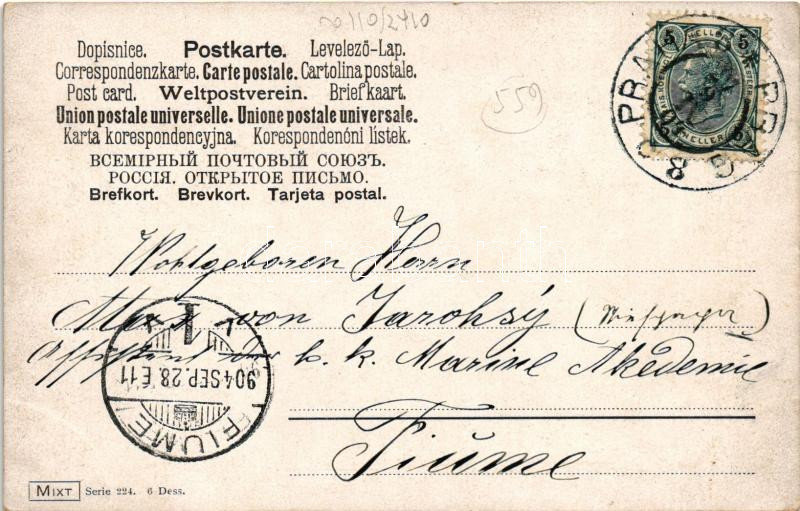 110/2410
Dopisnice. Postkarte. Levelező-Lap.
Correspondenzkarte. Carte postale. Cartolina postale.
Post card. Weltpostverein. Briefkaart.
Union postale universelle. Unione postale universale.
Karta korespondencyjna. Korespondenóni listek.
ВСЕМІРНЫЙ ПОЧТОВЫЙ СОЮЗЪ.
РОССІЯ. ОТКРЫТОЕ ПИСЬМО.
Brefkort. Brevkort. Tarjeta postal.
559
5 HELLER 5
HELLER
Wohlgeboren Herrn
von Jaroksý
Assistent der k. k. Marine Akademie
Fiume
904 SEP. 28. E. 11
FIUME
MIXT Serie 224. 6 Dess.